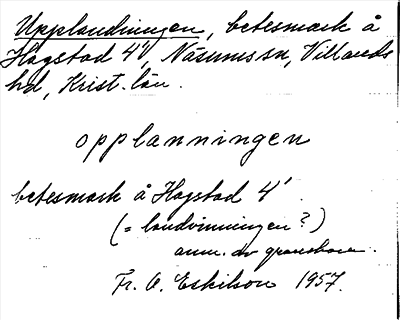 Upplandningen, betesmark å
Hogstad 4¹, Näsums sn, Villands
hd, Krist. län.
opplanningen
betesmark å Hogstad 4¹
(= landvinningen?)
anm. av granskare.
Fr. A. Eskilson 1957.